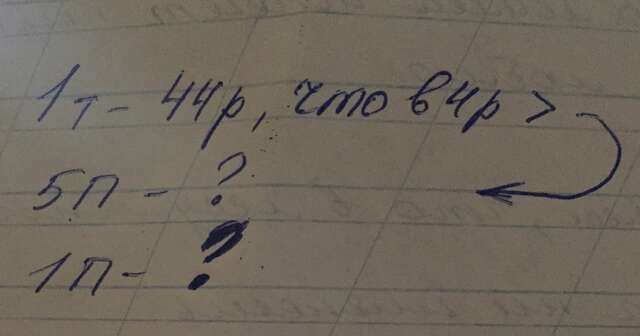 1т - 44р, что в 4р >
5п - ?
1п - ?